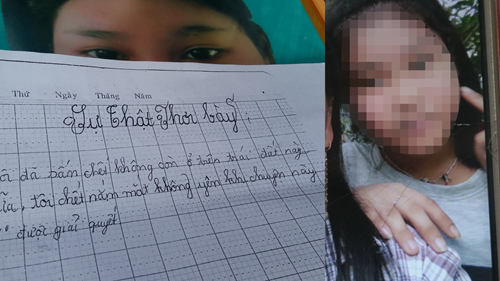 Thứ Ngày Tháng Năm
Sự Thật Phơi bày
đã chết không còn ở trên trái đất này
tôi chết nắm mắt không yên khi chuyện này
được giải quyết